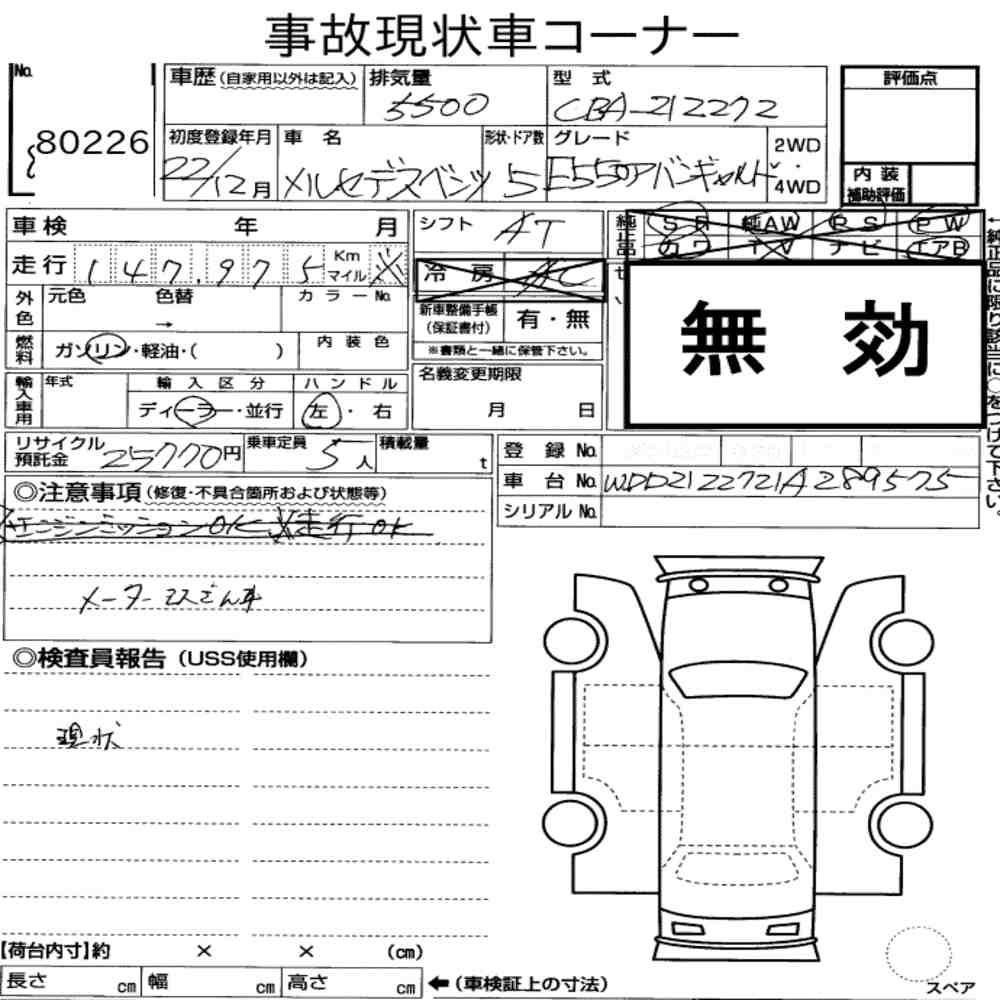 事故現状車コーナー
No. 80226
車歴（自家用以外は記入） 排気量 5500 型式 CBA-212272
初度登録年月 22/12月 車名 メルセデスベンツ 形状・ドア数 5 グレード E550アバンギャルド 2WD・4WD
評価点
内装補助評価
車検 年 月
走行 147,975 Km マイル ※
外色 元色 色替 → カラーNo.
燃料 ガソリン・軽油・（ ） 内装色
輸入車用 年式 輸入区分 ディーラー・並行 ハンドル 左・右
シフト AT
冷房 AC
新車整備手帳（保証書付） 有・無
※書類と一緒に保管下さい。
名義変更期限 月 日
純正品 SR 純AW PS PW
カワ TV ナビ エアB
無効
←純正品に限り該当に○をつけて下さい。
リサイクル預託金 25770円 乗車定員 5人 積載量 t
登録No.
車台No. WDD2122721A289575
シリアルNo.
◎注意事項（修復・不具合箇所および状態等）
エンジンミッションOK 走行OK
メーター改ざん車
◎検査員報告（USS使用欄）
現状
【荷台内寸】約 × × （cm）
長さ cm 幅 cm 高さ cm ←（車検証上の寸法）
スペア